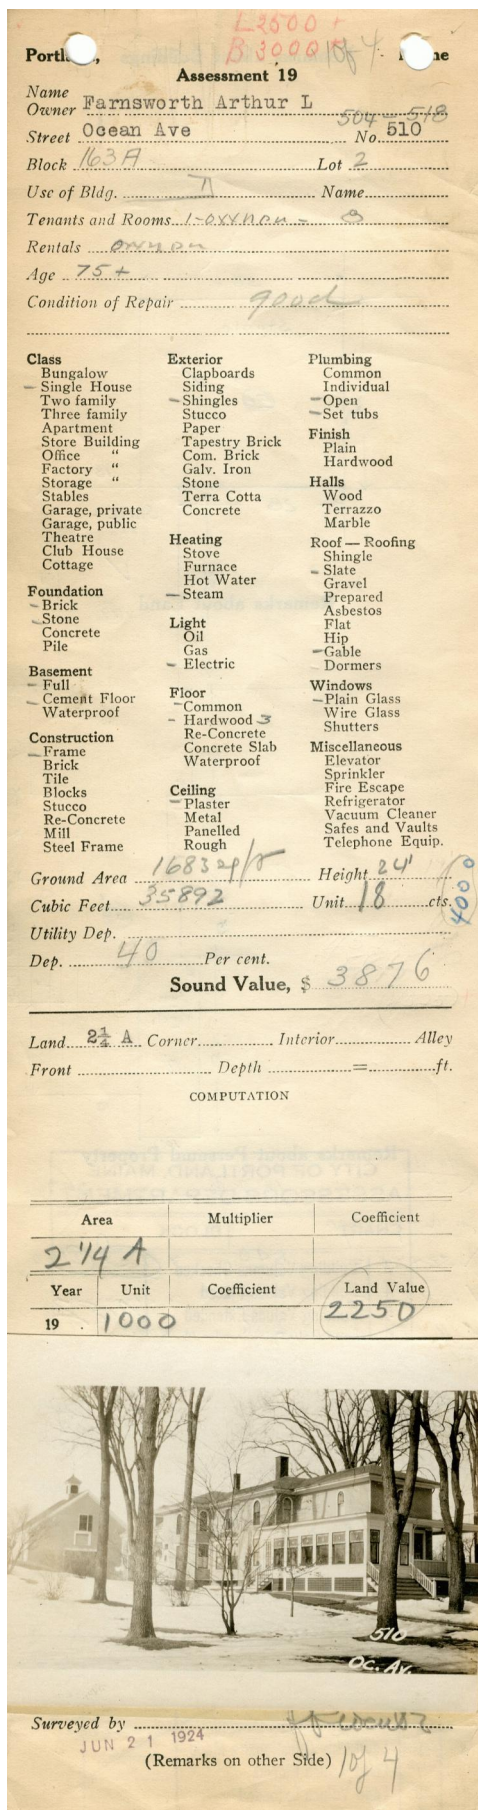 L2500 +
B3000 +
1 of 4
Assessment 19
Name
Owner Farnsworth Arthur L
504-518
Street Ocean Ave No. 510
Block 163A Lot 2
Use of Bldg. Name
Tenants and Rooms 1-owner - 8
Rentals owner
Age 75+
Condition of Repair good
Class
Bungalow
- Single House
Two family
Three family
Apartment
Store Building
Office "
Factory "
Storage "
Stables
Garage, private
Garage, public
Theatre
Club House
Cottage
Foundation
- Brick
- Stone
Concrete
Pile
Basement
- Full
- Cement Floor
Waterproof
Construction
- Frame
Brick
Tile
Blocks
Stucco
Re-Concrete
Mill
Steel Frame
Exterior
Clapboards
Siding
- Shingles
Stucco
Paper
Tapestry Brick
Com. Brick
Galv. Iron
Stone
Terra Cotta
Concrete
Heating
Stove
Furnace
Hot Water
- Steam
Light
Oil
Gas
- Electric
Floor
- Common
- Hardwood 3
Re-Concrete
Concrete Slab
Waterproof
Ceiling
- Plaster
Metal
Panelled
Rough
Plumbing
Common
Individual
- Open
- Set tubs
Finish
Plain
Hardwood
Halls
Wood
Terrazzo
Marble
Roof — Roofing
Shingle
- Slate
Gravel
Prepared
Asbestos
Flat
Hip
- Gable
Dormers
Windows
- Plain Glass
Wire Glass
Shutters
Miscellaneous
Elevator
Sprinkler
Fire Escape
Refrigerator
Vacuum Cleaner
Safes and Vaults
Telephone Equip.
Ground Area 1683 Height 24'
Cubic Feet 35892 Unit 18 cts.
4000
Utility Dep.
Dep. 40 Per cent.
Sound Value, $ 3876
Land 2¼ A Corner Interior Alley
Front Depth = ft.
COMPUTATION
Area Multiplier Coefficient
2 1/4 A
Year Unit Coefficient Land Value
19 1000 2250
510
OC. AV.
Surveyed by
JUN 21 1924
(Remarks on other Side) 1 of 4